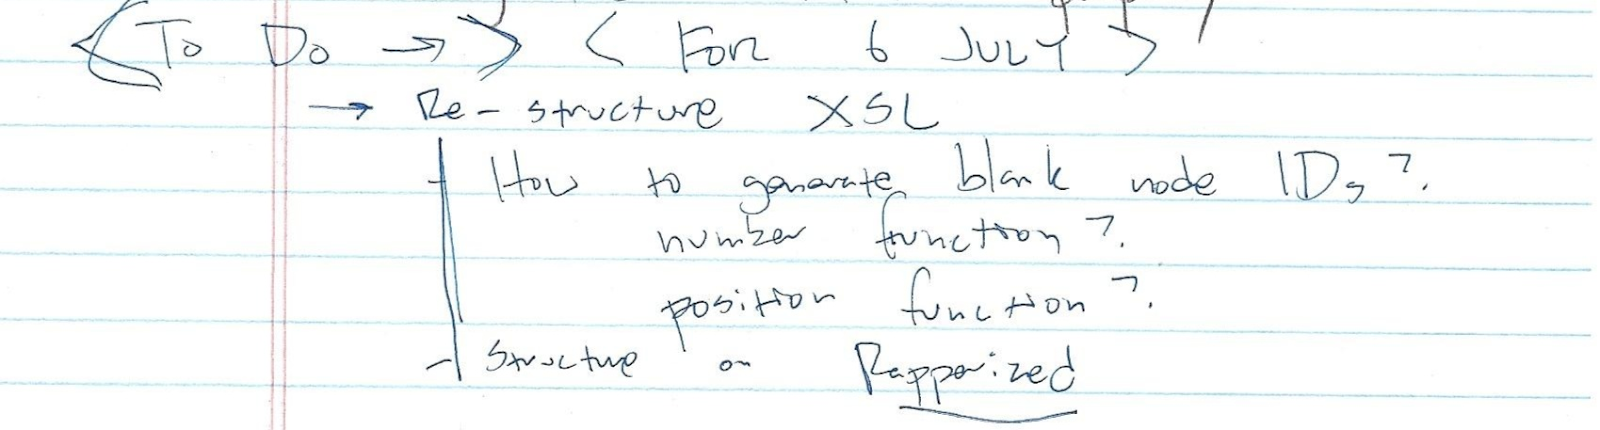 <To Do →> < For 6 JULY >
→ Re-structure XSL
How to generate blank node IDs?
number function?
position function?
Structure on Rapperized